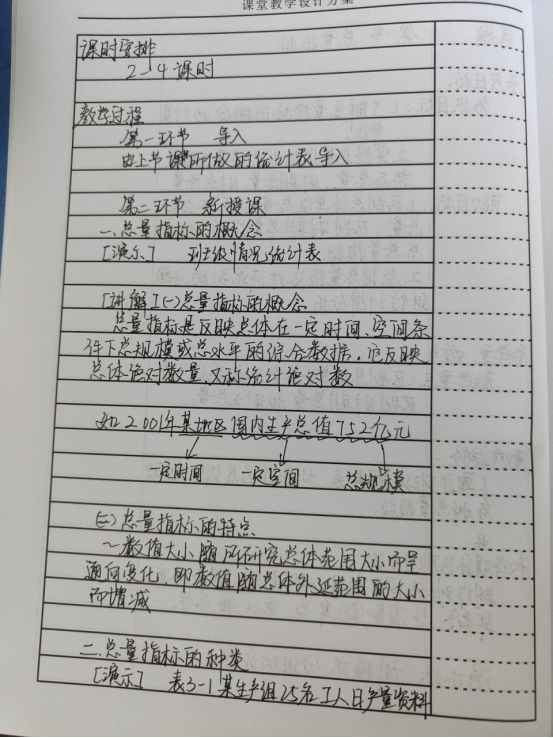 课堂教学设计方案
课时安排
2-4课时
教学过程
第一环节 导入
由上节课所做的统计表导入
第二环节 新授课
一、总量指标的概念
[演示] 班级情况统计表
[讲解](一)总量指标的概念
总量指标是反映总体在一定时间、空间条
件下总规模或总水平的综合数据,它反映
总体绝对数量,又称统计绝对数
如2001年某地区国内生产总值752亿元
一定时间 一定空间 总规模
(二)总量指标的特点
~数值大小随所研究总体范围大小而呈
通向变化,即数值随总体外延范围的大小
而增减
二、总量指标的种类
[演示] 表3-1某生产组25名工人日产量资料